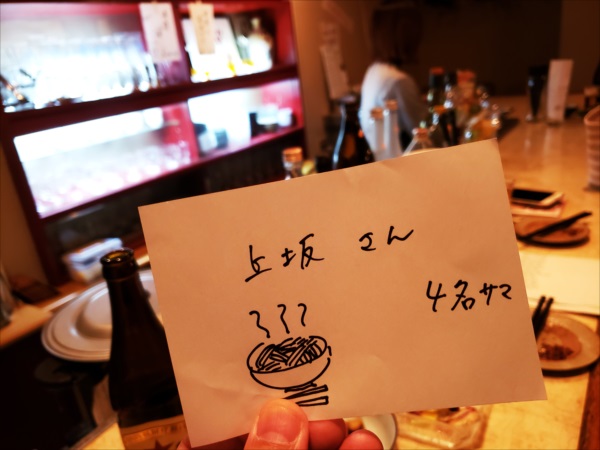 上坂 さん
4名サマ